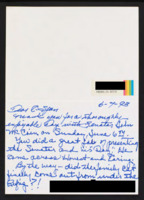 6-7-98
Dear
Thank you for a thoroughly
enjoyable day with Senator John
McCain on Sunday, June 6th.
You did a great job of presenting
the Senator and
come across honest and caring.
By the way - did the family cat
finally come out from under the